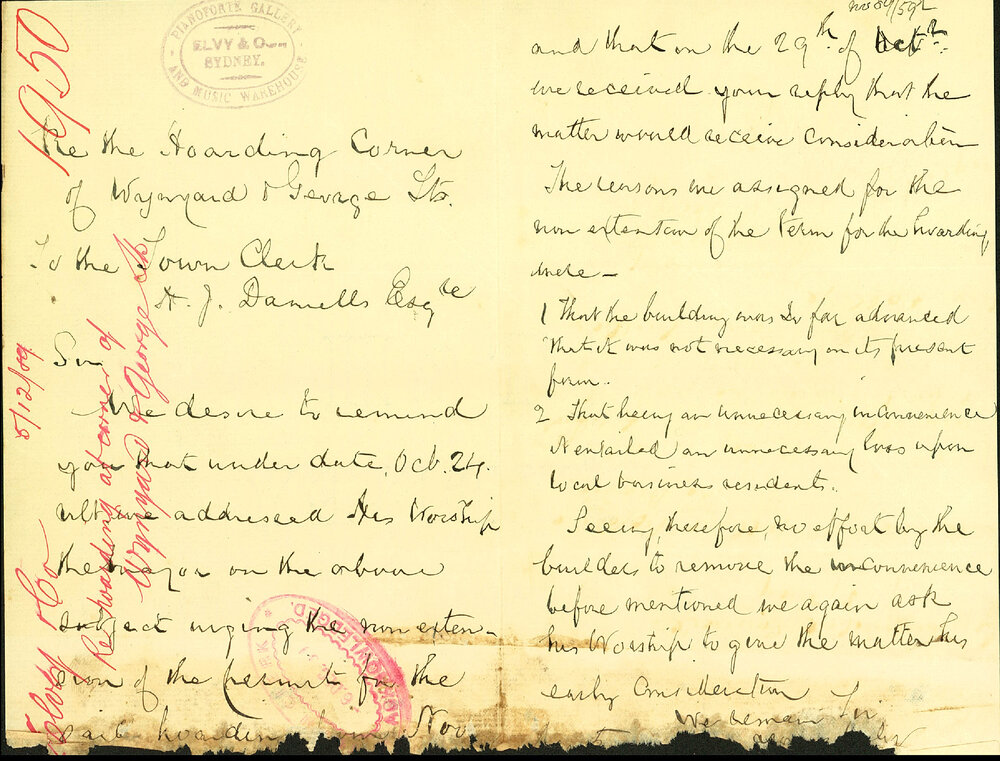 PIANOFORTE GALLERY
ELVY & Co
SYDNEY.
AND MUSIC WAREHOUSE
1950
Re the Hoarding Corner
of Wynyard & George Sts.
To the Town Clerk
Esq
Sir
We desire to remind
you that under date, Oct. 24.
ult we addressed His Worship
the mayor on the above
subject urging the non exten-
sion of the permit for the
said hoarding from Nov
8/12/09
Elvy & Co
Re hoarding at corner of
Wynyard & George Sts
ACKNOWLEDGED
and that on the 29th of Oct
we received your reply that the
matter would receive consideration
The reasons we assigned for the
non extention of the term for the hoarding,
were —
1 That the building was so far advanced
that it was not necessary in its present
form.
2 That being an unnecessary inconvenience
it entailed an unnecessary loss upon
local business residents.
Seeing, therefore, no effort by the
builders to remove the inconvenience
before mentioned we again ask
his Worship to give the matter his
early Consideration
We remain Sir